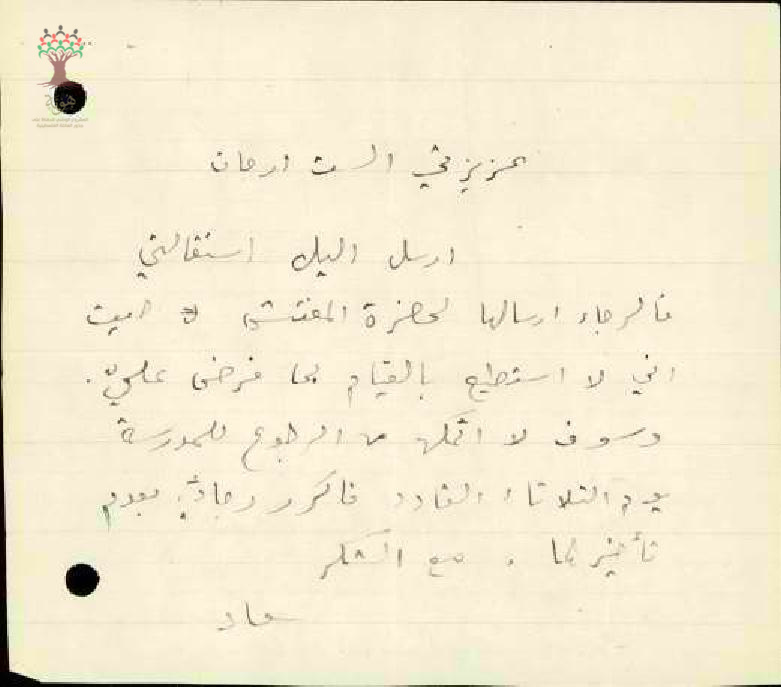 عزيزتي الست
ارسل اليك استقالتي
فالرجاء ارسالها لحضرة المفتش حيث
اني لا استطيع بالقيام بما فرض عليّ.
وسوف لا اتمكن من الرجوع للمدرسة
يوم الثلاثاء القادم فاكرر رجائي بعدم
تأخيرها . مع الشكر
سعاد